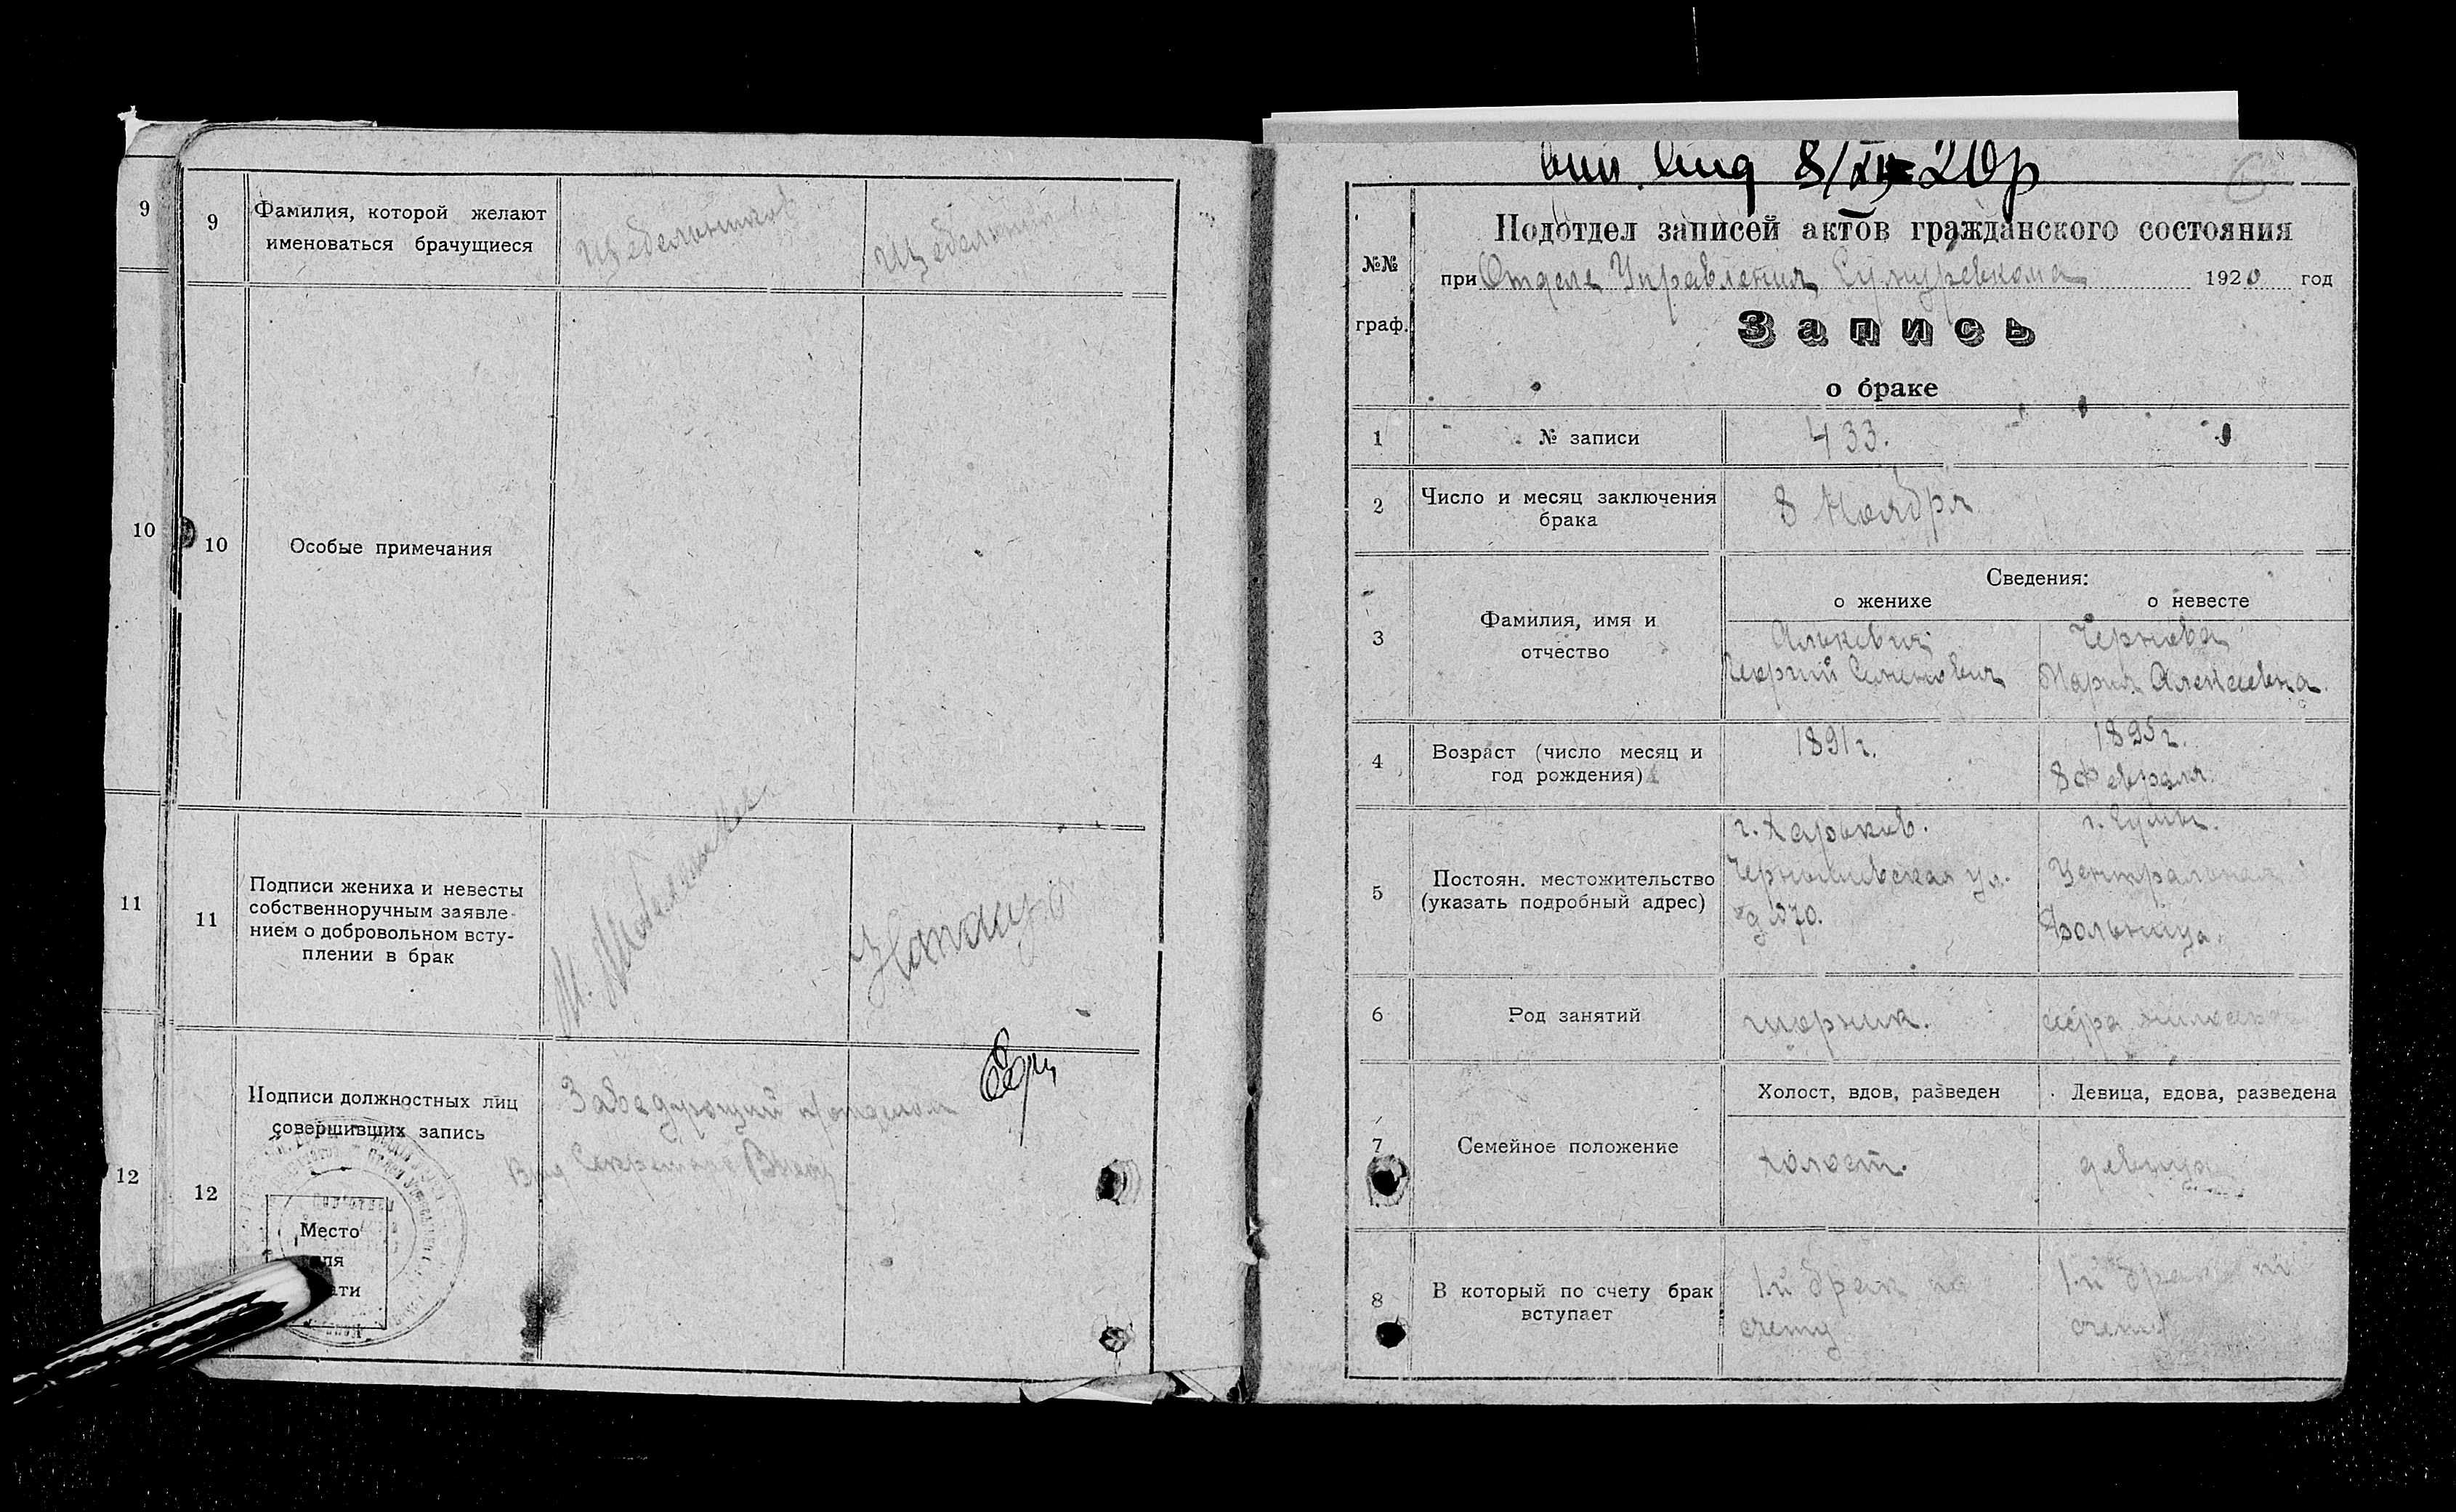 9
10
11
12
9
Фамилия, которой желают
именоваться брачущиеся
Щебельников
10
Особые примечания
11
Подписи жениха и невесты
собственноручным заявле-
нием о добровольном всту-
плении в брак
12
Подписи должностных лиц
совершивших запись
Заведующий п/отделом
Секретарь
Место
8/XI-20р
№№
граф.
Подотдел записей актов гражданского состояния
при Отделе Управления Сумуревкома 1920 год
Запись
о браке
1
№ записи
433.
2
Число и месяц заключения
брака
8 Ноября
Сведения:
о женихе
о невесте
3
Фамилия, имя и
отчество
Чернова
Георгий Семенович
Мария Алексеевна
4
Возраст (число месяц и
год рождения)
1891 г.
1895 г.
8 февраля.
5
Постоян. местожительство
(указать подробный адрес)
г. Харьков.
Чернышевская ул.
д №70.
г. Сумы.
Центральная
больница.
6
Род занятий
шорник.
7
Семейное положение
Холост, вдов, разведен
Девица, вдова, разведена
холост.
девица
8
В который по счету брак
вступает
1-й брак по
счету
1-й брак по
счету